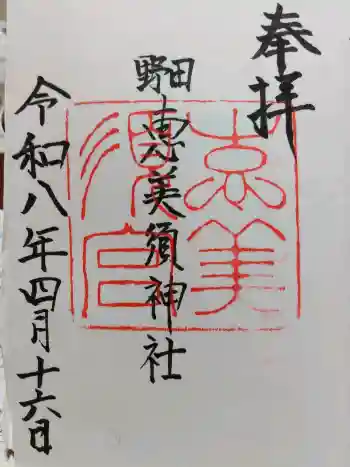 奉拝
野田
恵美須神社
恵美
須宮
令和八年四月十六日